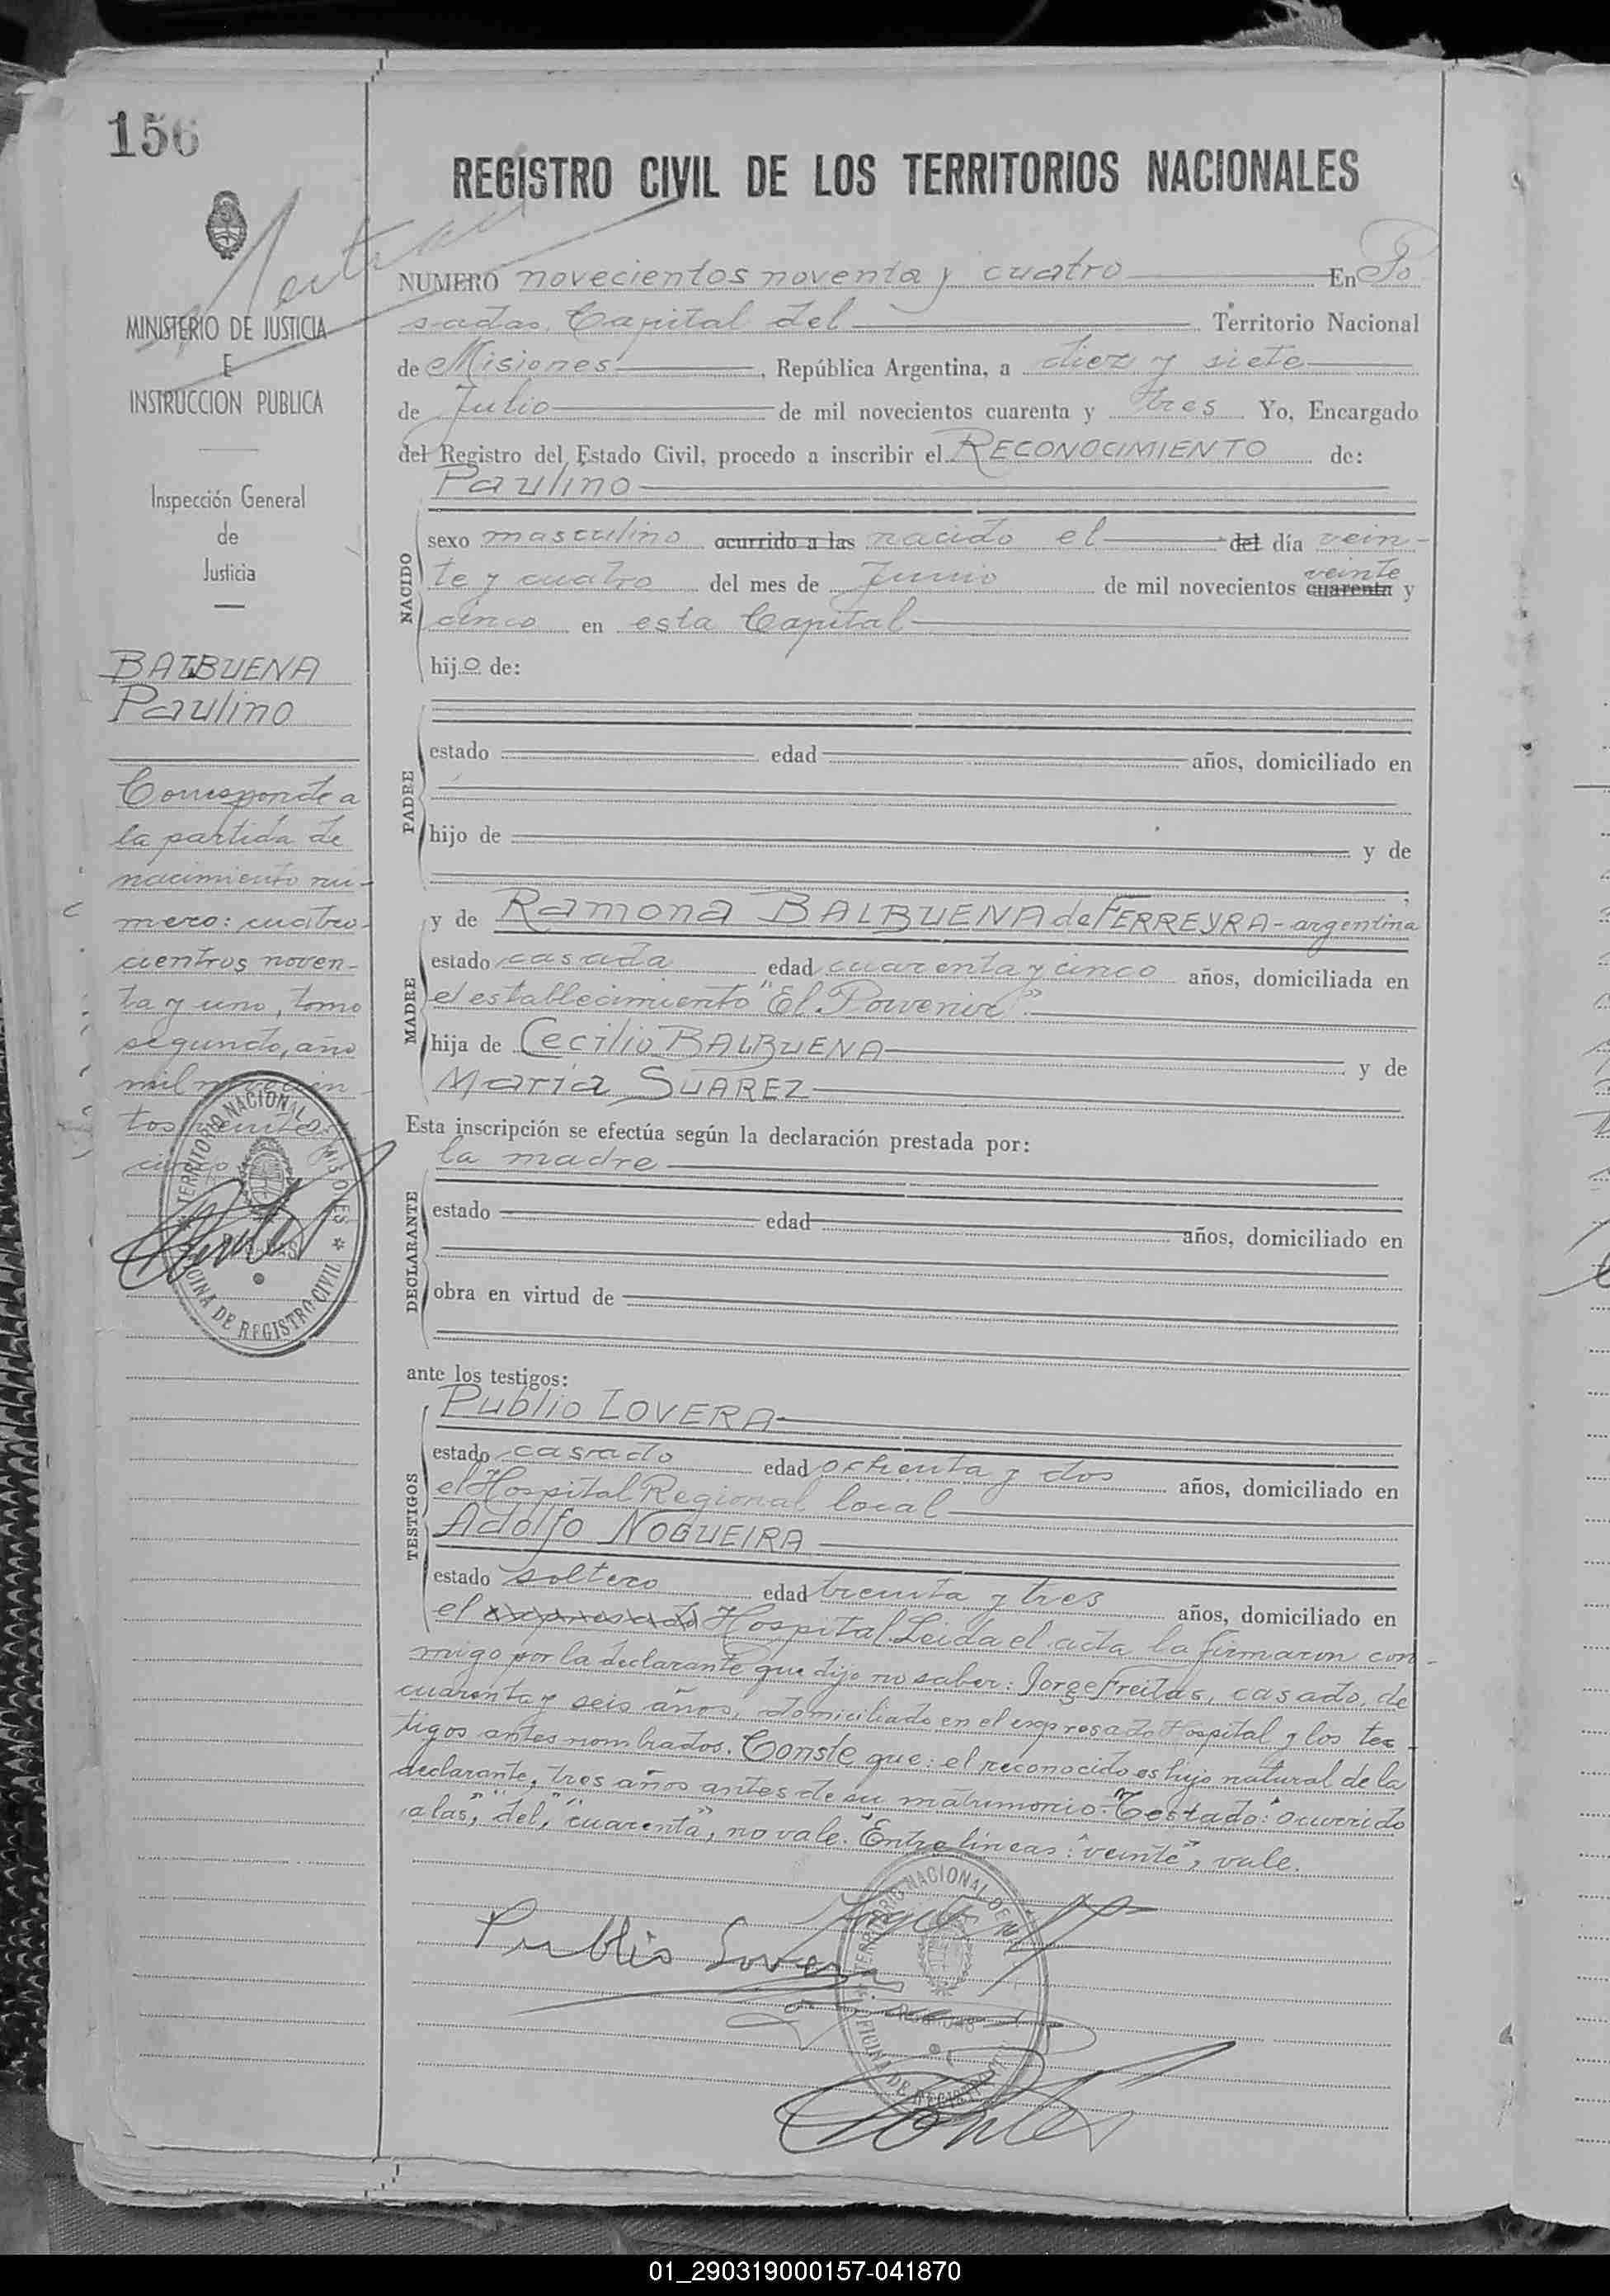 156
REGISTRO CIVIL DE LOS TERRITORIOS NACIONALES
MINISTERIO DE JUSTICIA
E
INSTRUCCION PUBLICA
Inspección General
de
Justicia
BALBUENA
Paulino
Corresponde a
la partida de
nacimiento nú-
mero: cuatro-
cientros noven-
ta y uno, tomo
segundo, año
mil novecien-
tos veinte
cinco
TERRITORIO NACIONAL DE MISIONES
POSADAS
OFICINA DE REGISTRO CIVIL
NUMERO novecientos noventa y cuatro En Po
sadas, Capital del Territorio Nacional
de Misiones, República Argentina, a diez y siete
de Julio de mil novecientos cuarenta y tres Yo, Encargado
del Registro del Estado Civil, procedo a inscribir el RECONOCIMIENTO de:
Paulino
NACIDO
sexo masculino ocurrido a las nacido el del día vein-
veinte
te y cuatro del mes de Junio de mil novecientos cuarenta y
cinco en esta Capital
hijo de:
PADRE
estado edad años, domiciliado en
hijo de y de
MADRE
y de Ramona BALBUENA de FERREYRA - argentina
estado casada edad cuarenta y cinco años, domiciliada en
el establecimiento "El Porvenir".
hija de Cecilio BALBUENA y de
María SUAREZ
Esta inscripción se efectúa según la declaración prestada por:
la madre
DECLARANTE
estado edad años, domiciliado en
obra en virtud de
ante los testigos:
TESTIGOS
Publio LOVERA
estado casado edad ochenta y dos años, domiciliado en
el Hospital Regional local
Adolfo NOGUEIRA
estado soltero edad treinta y tres años, domiciliado en
el expresado Hospital. Leida el acta la firmaron con-
migo por la declarante que dijo no saber: Jorge Freitas, casado, de
cuarenta y seis años, domiciliado en el expresado Hospital y los tes-
tigos antes nombrados. Conste que: el reconocido es hijo natural de la
declarante, tres años antes de su matrimonio. Testado: "ocurrido
a las", "del", "cuarenta", no vale. Entre líneas: "veinte", vale.
Publio Lovera
TERRITORIO NACIONAL DE
POSADAS
OFICINA DE REGISTRO
01_290319000157-041870